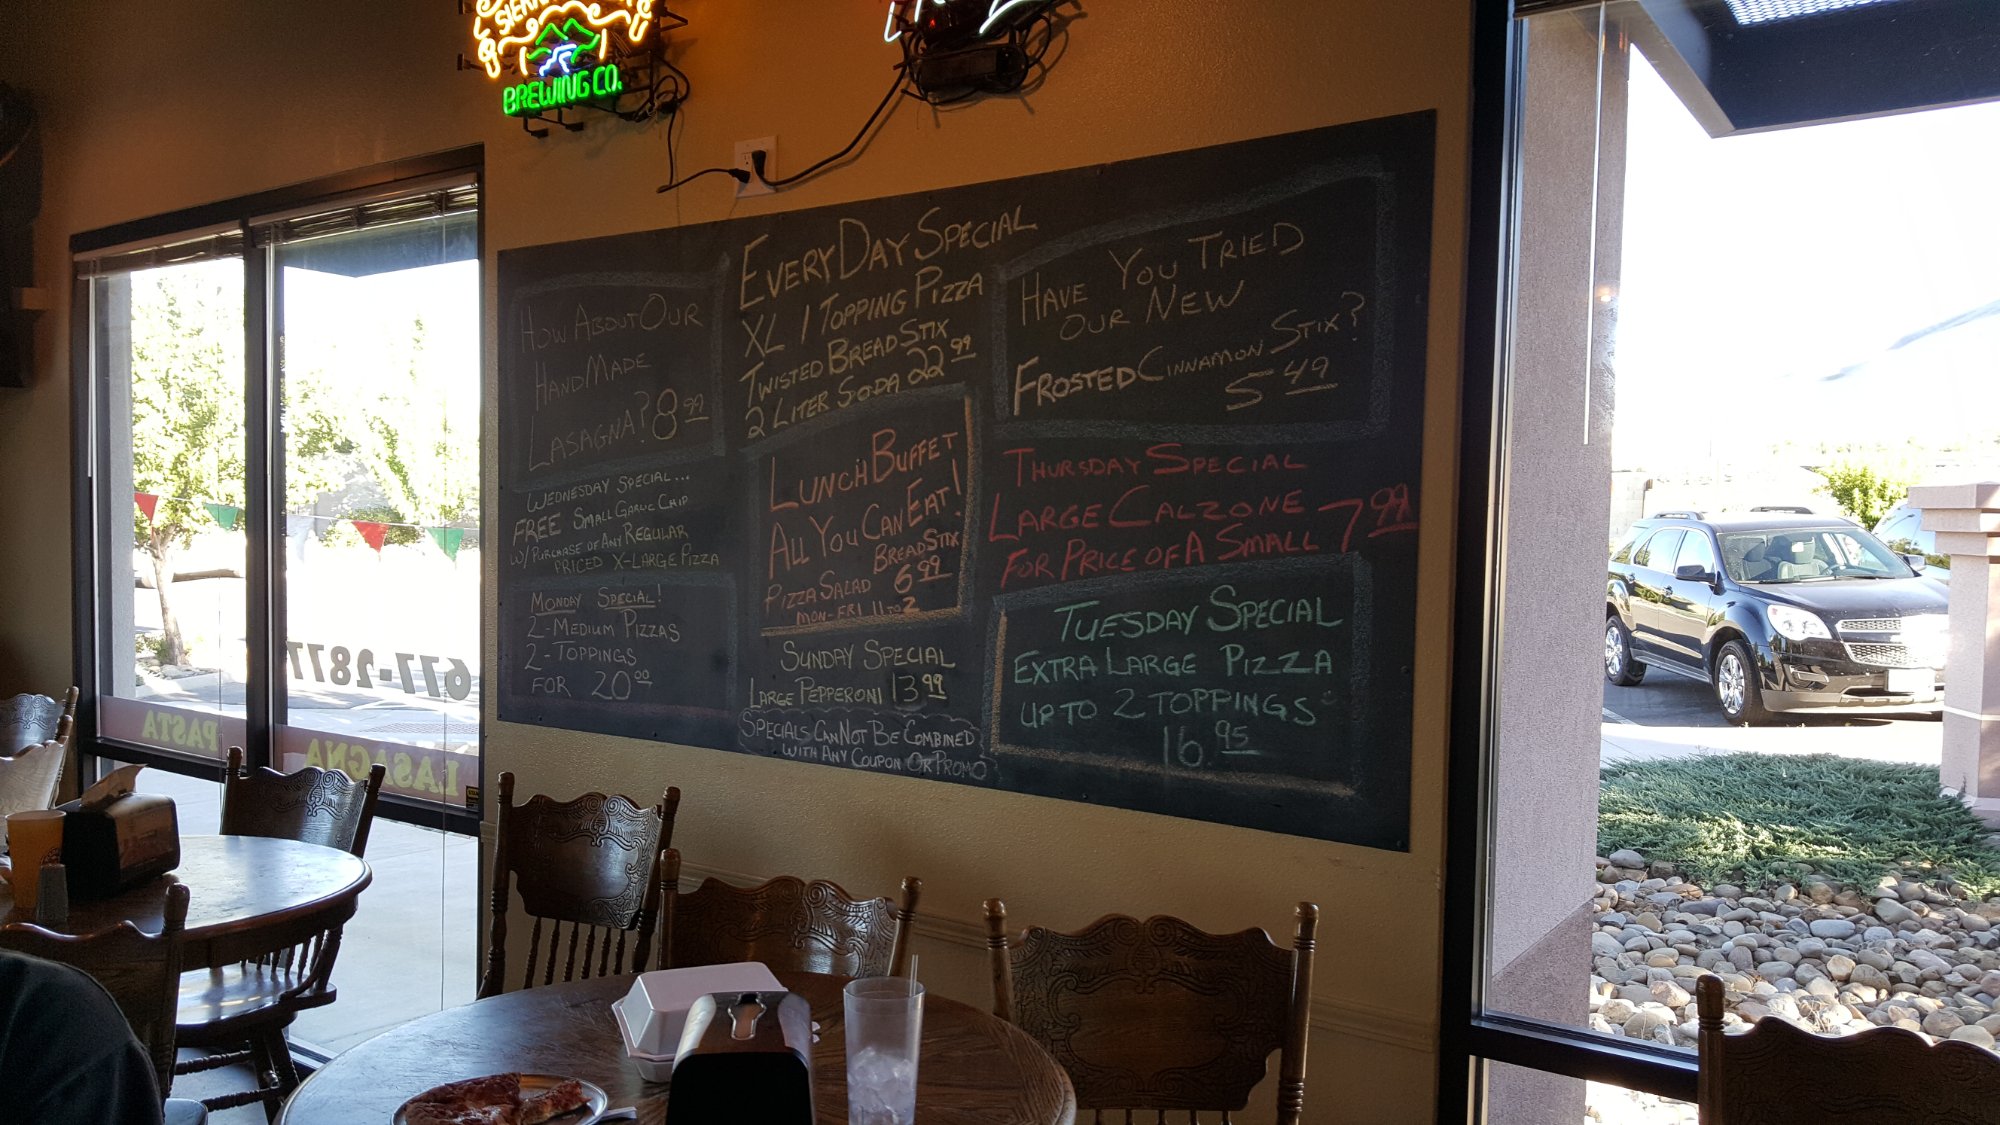 BREWING CO.
HOW ABOUT OUR
HANDMADE
LASAGNA? 8.99
WEDNESDAY SPECIAL...
FREE SMALL GARLIC CHIP
W/ PURCHASE OF ANY REGULAR
PRICED X-LARGE PIZZA
MONDAY SPECIAL!
2-MEDIUM PIZZAS
2-TOPPINGS
FOR 20.00
EVERYDAY SPECIAL
XL 1 TOPPING PIZZA
TWISTED BREADSTIX
2 LITER SODA 22.99
LUNCH BUFFET
ALL YOU CAN EAT!
BREADSTIX
PIZZA SALAD 6.99
MON-FRI 11 TO 2
SUNDAY SPECIAL
LARGE PEPPERONI 13.99
SPECIALS CANNOT BE COMBINED
WITH ANY COUPON OR PROMO
HAVE YOU TRIED
OUR NEW
FROSTED CINNAMON STIX?
5.49
THURSDAY SPECIAL
LARGE CALZONE
FOR PRICE OF A SMALL 7.99
TUESDAY SPECIAL
EXTRA LARGE PIZZA
UP TO 2 TOPPINGS
16.95
677-2877
PASTA
LASAGNA